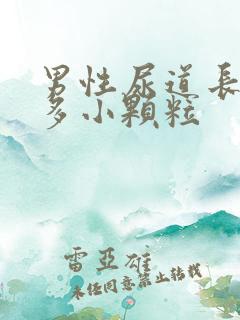 男性尿道長
多小顆粒
雷亞雄
未经同意禁止转载